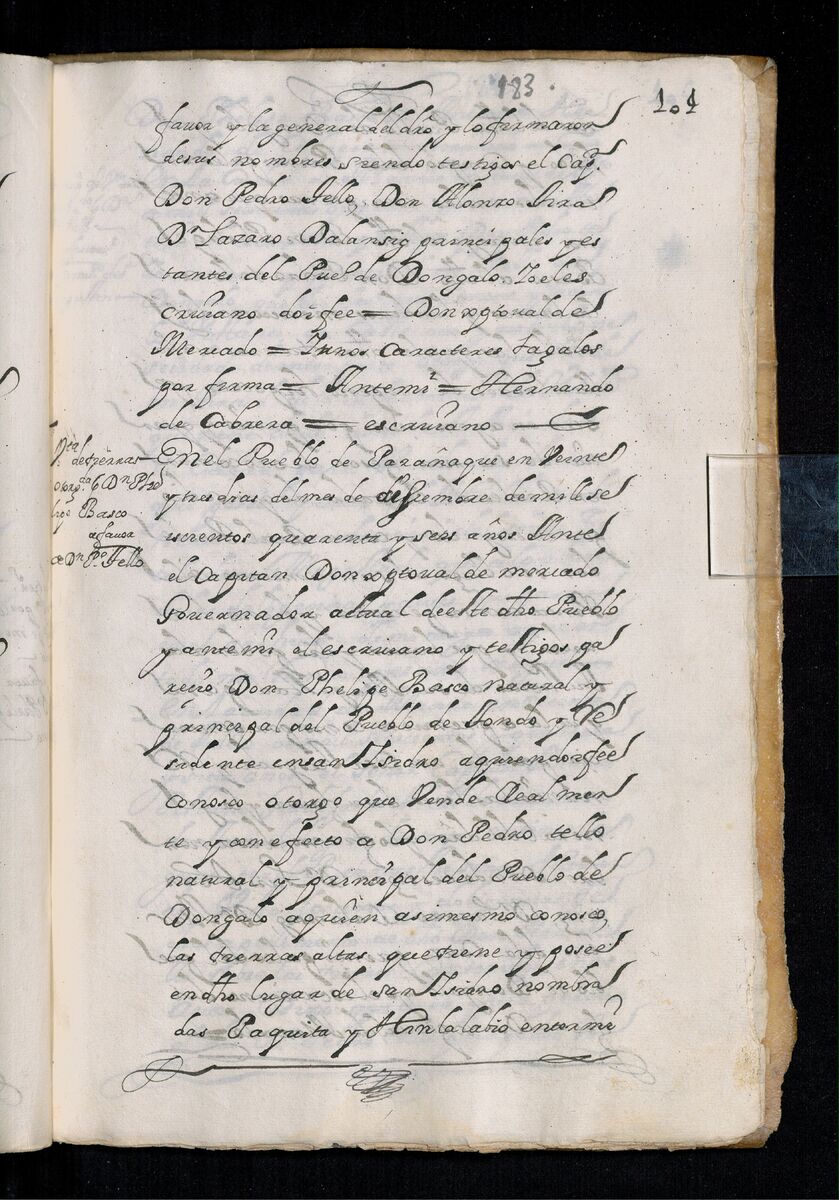 183.
101
favor y la general del dr̃o y lo firmaron
desus nombres siendo testigos el Capⁿ.
Don Pedro Tello, Don Alonzo Tira
Dⁿ Lazaro Dalansig principales y es
tantes del Puebᵒ de Dongalo. Yo el es
criuano doi fee = Don xp̃toual de
Mercado = Vnos Caracteres tagalos
por firma = Antemi = Hernando
de Cabrera = escriuano
Vᵗᵃ de tierras
otorgᵈᵃ Dⁿ Phe
lipe Basco
a favor
de Dⁿ Pᵒ Tello
En el Pueblo de Parañaque en Veinte
y tres dias del mes de disiembre de mill se
iscientos quarenta y seis años Ante
el Capitan Don xp̃toual de mercado
Gouernador actual deeste dh̃o Pueblo
y ante mi el escriuano y testigos pa
recio Don Phelipe Basco natural y
principal del Pueblo de tondo y Re
sidente en san Isidro a quien doi fee
conosco otorgo que Vende Real men
te y con efecto a Don Pedro tello
natural y principal del Pueblo de
Dongalo a quien asimesmo conosco,
las tierras altas que tiene y posee
en dh̃o lugar de san Isidro nombra
das Paquita y Hinlalabio entermi